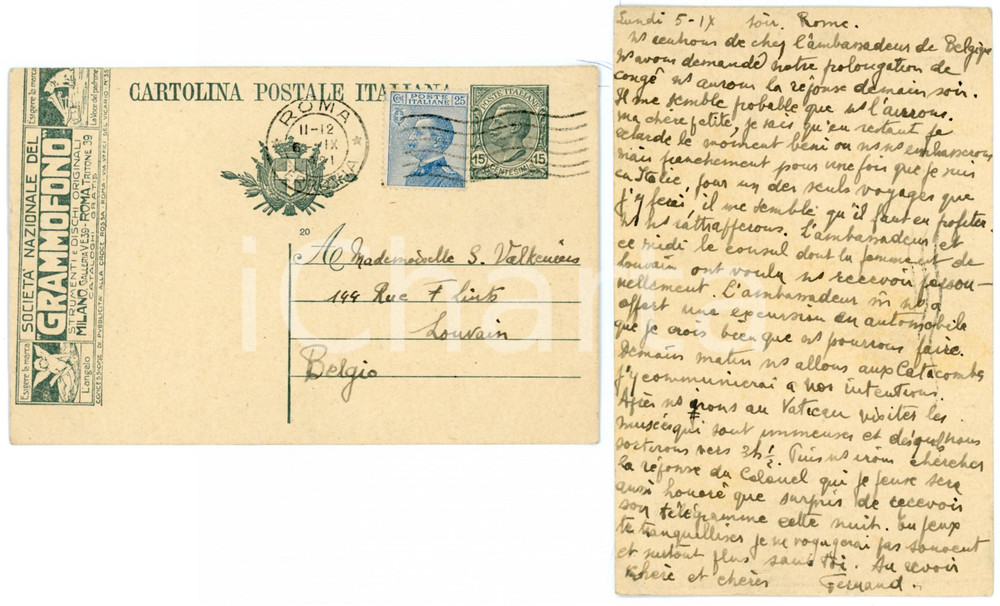 CARTOLINA POSTALE ITALIANA
SOCIETÀ NAZIONALE DEL
"GRAMMOFONO"
STRUMENTI E DISCHI ORIGINALI
MILANO, GALLERIA V.E. 39 - ROMA, TRITONE 39
CATALOGHI GRATIS
Esigere la marca
La Voce del padrone
Esigere la marca
L'angelo
ROMA
11-12
IX
POSTE
ITALIANE
Cmi 25
POSTE ITALIANE
15 CENTESIMI 15
20
A Mademoiselle S. Valkeniers
144 Rue F Lints
Louvain
Belgio
iCharta
Lundi 5-IX soir. Rome.
Ns rentrons de chez l'ambassadeur de Belgique
Ns avons demandé notre prolongation de
congé ns aurons la réponse demain soir.
Il me semble probable que ns l'aurons.
Ma chère petite, je sais qu'en restant je
retarde le moment béni ou ns ns embrasserons
mais franchement pour une fois que je suis
en Italie, pour un des seuls voyages que
j'y ferai, il me semble qu'il faut en profiter.
Ns ns rattrapperons. L'ambassadeur et
ce midi le consul dont la femme est de
Louvain ont voulu ns recevoir person-
nellement. L'ambassadeur ns a
offert une excursion en automobile
que je crois bien que ns pourrons faire.
Demain matin ns allons aux Catacombes
j'y communierai a nos intentions.
Après ns irons au Vatican visiter les
musées qui sont immenses et desquels nous
sortirons vers 3h 1/2. Puis ns irons chercher
la réponse du Colonel qui je pense sera
aussi honoré que surpris de recevoir
son télégramme cette nuit. Tu peux
te tranquilliser je ne voyagerai pas souvent
et surtout plus sans toi. Au revoir
chère et chères Fernand.